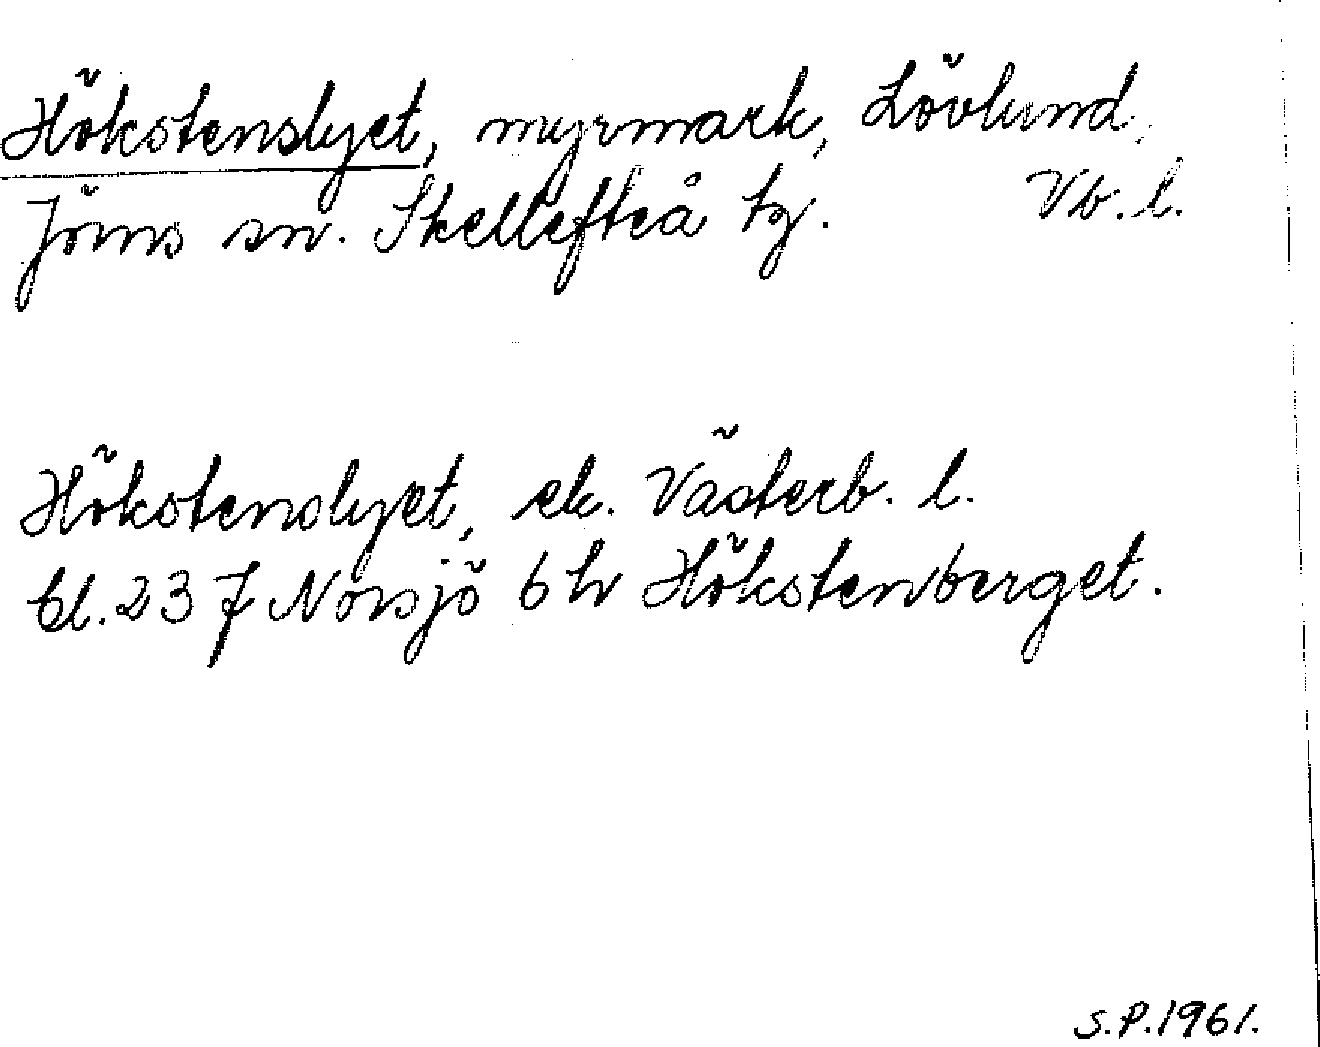 Hökstenslyet, myrmark, Lövlund,
Jörns sn. Skellefteå tg. Vb. l.
Hökstenslyet, ek. Västerb. l.
bl. 23 f Norsjö 6 h Hökstenberget.
S.P. 1961.